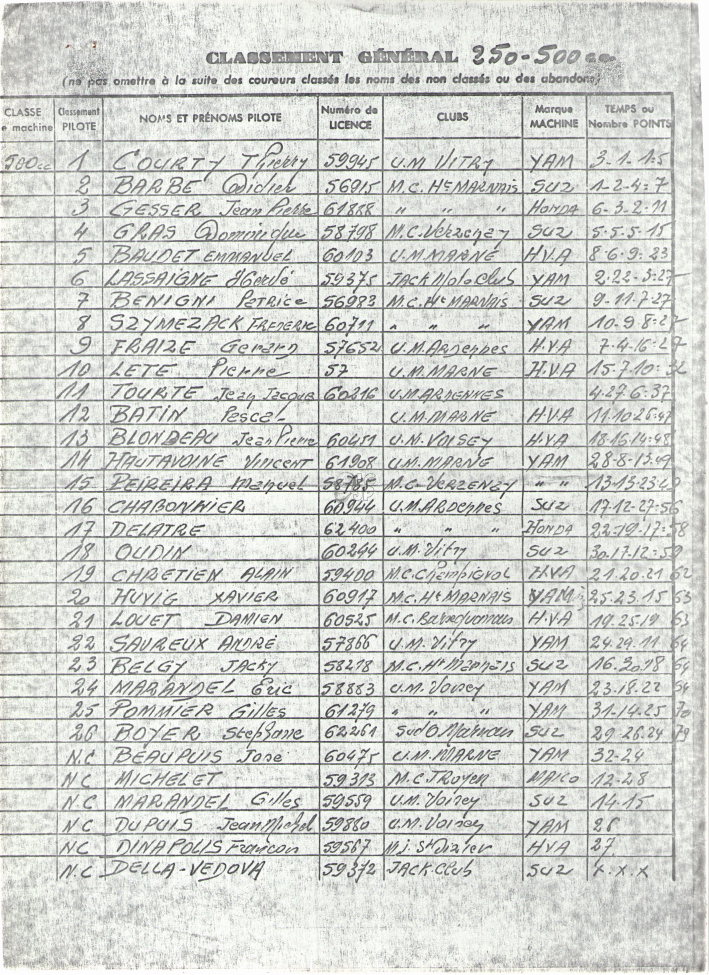 CLASSEMENT GÉNÉRAL 250-500cc
(ne pas omettre à la suite des coureurs classés les noms des non classés ou des abandons)
CLASSE e machine Classement PILOTE NOMS ET PRÉNOMS PILOTE Numéro de LICENCE CLUBS Marque MACHINE TEMPS ou Nombre POINTS
500cc 1 COURTY Thierry 59945 U.M VITRY YAM 3-1-1:5
2 BARBE Didier 56915 M.C. Hte MARNAIS SUZ 1-2-4:7
3 GESSER Jean Pierre 61888 " " " HONDA 6-3-2:11
4 GRAS Dominique 58798 M.C. Verzeney SUZ 5-5-5:15
5 BAUDET EMMANUEL 60103 U.M. MARNE H.V.A 8-6-9:23
6 LASSAIGNE Hervé 59375 JACK Moto Club YAM 2-22-3:27
7 BENIGNI Patrice 56983 M.C. Hte MARNAIS SUZ 9-11-7:27
8 SZYMEZACK FREDERIC 60711 " " " YAM 10-9-8:27
9 FRAIZE Gerard 57652 U.M. Ardennes H.V.A 7-4-16:27
10 LETE Pierre 57 U.M. MARNE H.V.A 15-7-10:32
11 TOURTE Jean Jacque 60216 U.M. ARDENNES 4-27-6:37
12 BATIN Pascal U.M. MARNE H.V.A 11-10-26:47
13 BLONDEAU Jean Pierre 60451 U.M. VOISEY H.V.A 18-16-14:48
14 HAUTAVOINE Vincent 61908 U.M. MARNE YAM 28-8-13:49
15 PEIREIRA Manuel 58785 M.C. VERZENZY " " 13-13-23:
16 CHABONNIER 60944 U.M. ARDENNES SUZ 17-12-27:56
17 DELATRE 62400 " " " HONDA 22-19-17:58
18 OUDIN 60244 U.M. Vitry SUZ 30-17-12:59
19 CHRETIEN ALAIN 59400 M.C. H.V.A 21-20-21 62
20 HUVIG XAVIER 60917 M.C. Hte MARNAIS YAM 25-23-15 63
21 LOUET DAMIEN 60525 M.C. H.V.A 19-25-19 63
22 SAVREUX ANDRÉ 57866 U.M. Vitry YAM 24-29-11 64
23 BELGY JACKY 58278 M.C. Hte Marnais SUZ 16-30-18 64
24 MARANDEL Eric 58883 U.M. Voisey YAM 23-18-22
25 POMMIER Gilles 61279 " " " YAM 31-14-25 70
26 BOYER Stephane 62261 Sud O Marnais SUZ 29-26-24 79
N.C BEAUPUIS José 60475 U.M. MARNE YAM 32-24
N.C MICHELET 59313 M.C TROYEN MAICO 12-28
N.C MARANDEL Gilles 59559 U.M. Voisey SUZ 14-15
N.C DUPUIS Jean Michel 59880 U.M. Voisey YAM 26
NC DINAPOLIS Francois 59567 M.J. St Dizier HVA 27
N.C DELLA-VEDOVA 59372 JACK Club SUZ X.X.X